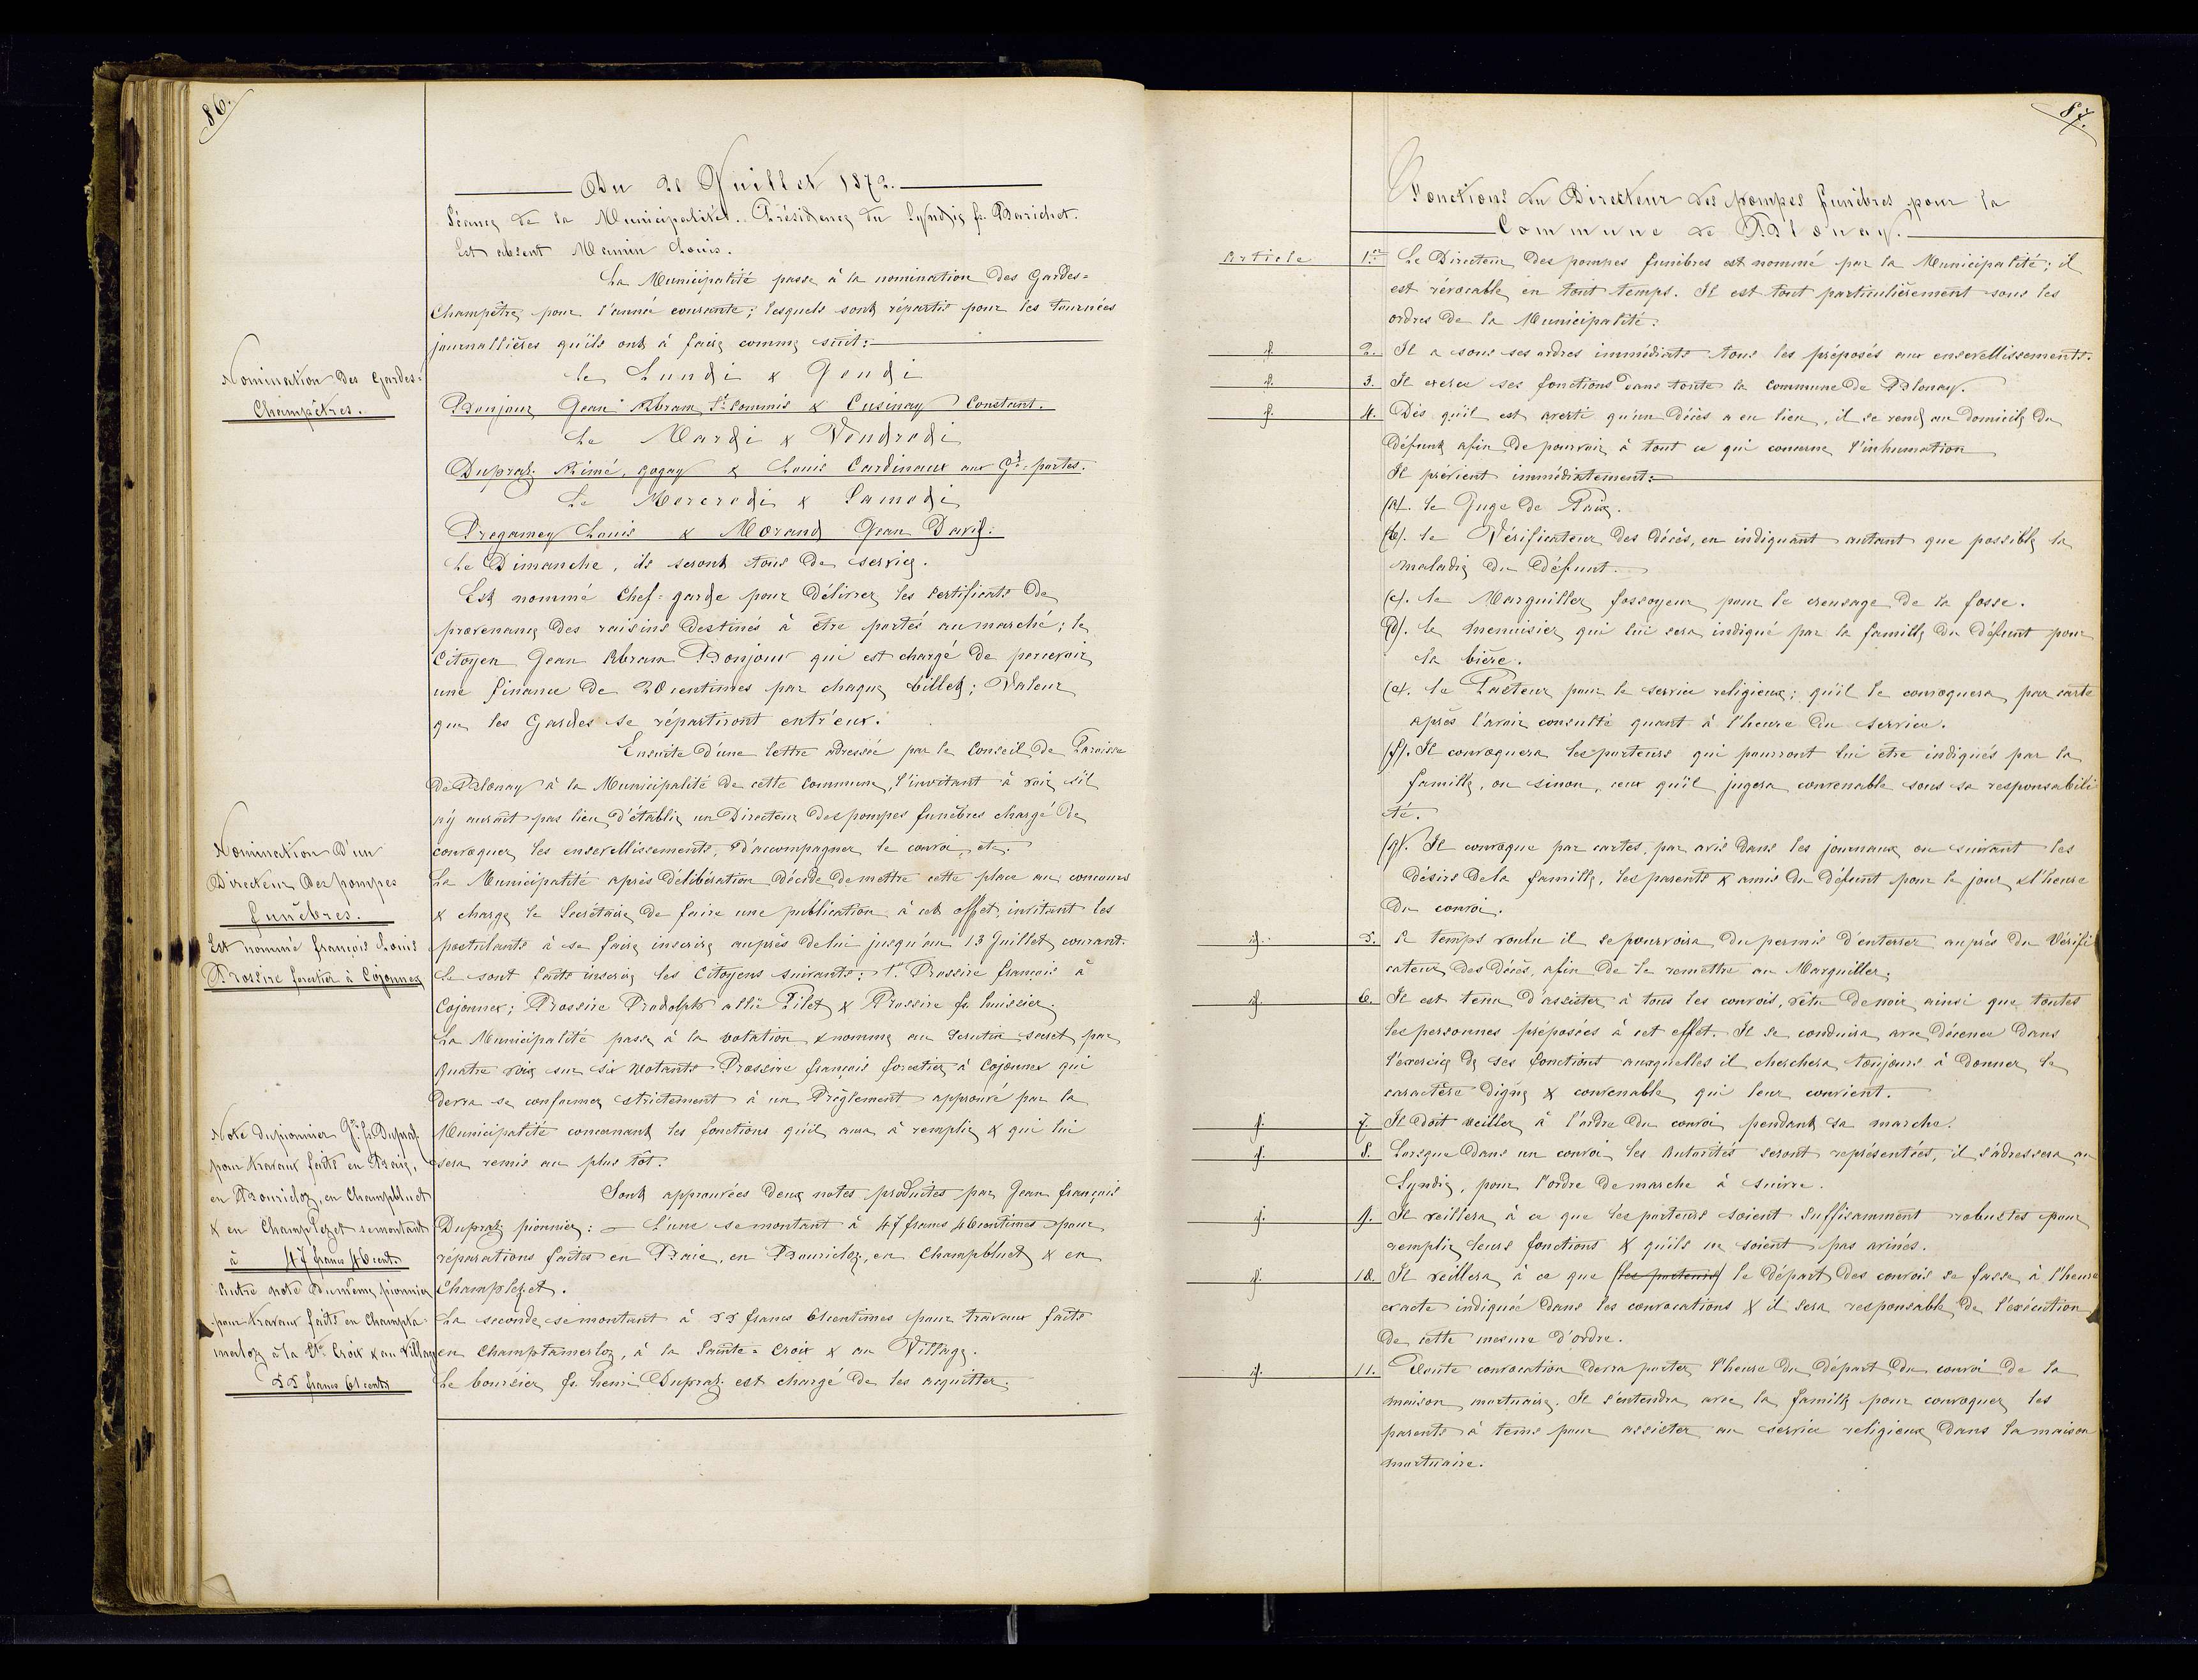 86.
Du 20 Juillet 1872.
Séance de la Municipalité. Présidence du Syndic fs. Barichet.
Est absent Mamin Louis.
La Municipalité passe à la nomination des Gardes=
Champêtre pour l'année courante; lesquels sont répartis pour les tournées
journallières qu'ils ont à faire comme suit:
Nomination des Gardes=
Champêtres.
le Lundi & Jeudi
Bonjour Jean Abram St. commis & Cusinay Constant.
Le Mardi & Vendredi
Dupraz Aimé, gogay & Louis Cardinaux aux Gd. portes.
Le Mercredi & Samedi
Pregamey Louis & Morand Jean David.
Le Dimanche, ils seront tous de service.
Est nommé Chef=garde pour délivrer les certificats de
provenance des raisins destinés à être portés au marché; le
Citoyen Jean Abram Bonjour qui est chargé de percevoir
une finance de 20 centimes par chaque billet; Valeur
que les Gardes se répartiront entr'eux.
Ensuite d'une lettre adressée par le Conseil de Paroisse
de Blonay à la Municipalité de cette Commune, l'invitant à voir s'il
n'y aurait pas lieu d'établir un Directeur des pompes funèbres chargé de
convoquer les ensevellissements, d'accompagner le convoi, etc.
Nomination d'un
Directeur des pompes
funèbres.
Est nommé françois Louis
Bossire forestier à Cojonnex
La Municipalité après délibération décide de mettre cette place au concours
& charge le Secrétaire de faire une publication à cet effet, invitant les
postulants à se faire inscrire auprès de lui jusqu'au 13 Juillet courant.
Se sont faits inscrire les Citoyens suivants: 1er. Bossire françois à
Cojonnex; Bossire Rodolph allié Pilet & Bossire fs. huissier.
La Municipalité passe à la votation & nomme au scrutin secret par
quatre voix sur six votants Bossire françois forestier à Cojonnex qui
devra se conformer strictement à un Règlement approuvé par la
Municipalité concernant les fonctions qu'il aura à remplir & qui lui
sera remis au plus tôt.
Note du pionnier Jn. fs. Dupraz
pour travaux faits en Baie,
en Bouricloz, en Champbluet
& en Champlezet se montant
à 47 francs 46 cent.
Autre note du même pionnier
pour travaux faits en Champta-
merloz à la Ste. Croix & au Village
55 francs 61 cents
Sont approuvées deux notes produites par Jean françois
Dupraz pionnier: — L'une se montant à 47 francs 46 centimes pour
réparations faites en Baie, en Bouricloz, en Champbluet & en
Champlezet.
La seconde se montant à 55 francs 61 centimes pour travaux faits
en Champtamerloz, à la Sainte=Croix & au Village.
Le boursier fs. henri Dupraz est chargé de les acquitter.
87.
Fonctions du Directeur des pompes funèbres pour la
Commune de Blonay.
Article 1er. Le Directeur des pompes funèbres est nommé par la Municipalité; il
est révocable en tout temps. Il est tout particulièrement sous les
ordres de la Municipalité.
2. Il a sous ses ordres immédiats tous les préposés aux ensevellissements.
3. Il exerce ses fonctions dans toute la commune de Blonay.
4. Dès qu'il est averti qu'un décès a eu lieu, il se rend au domicile du
défunt afin de pourvoir à tout ce qui concerne l'inhumation
Il prévient immédiatement:
(a). le Juge de Paix.
(b). le Vérificateur des décès, en indiquant autant que possible la
maladie du défunt.
(c). le Marguiller fossoyeur pour le creusage de la fosse.
(d). le menuisier qui lui sera indiqué par la famille du défunt pour
la bière.
(e). le Pasteur pour le service religieux; qu'il le convoquera par carte
après l'avoir consulté quant à l'heure du service.
(f). Il convoquera les porteurs qui pourront lui être indiqués par la
famille, ou sinon, ceux qu'il jugera convenable sous sa responsabili
té.
(g). Il convoque par cartes, par avis dans les journaux ou suivant les
désirs de la famille, les parents & amis du défunt pour le jour & l'heure
du convoi.
5. A temps voulu il se pourvoira du permis d'enterrer auprès du Vérifi
cateur des décès, afin de le remettre au Marguiller.
6. Il est tenu d'assister à tous les convois, vêtu de noir ainsi que toutes
les personnes préposées à cet effet. Il se conduira avec décence dans
l'exercice de ses fonctions auxquelles il cherchera toujours à donner le
caractère digne & convenable qui leur convient.
7. Il doit veiller à l'ordre du convoi pendant sa marche.
8. Lorsque dans un convoi les Autorités seront représentées, il s'adressera au
Syndic, pour l'ordre de marche à suivre.
9. Il veillera à ce que les porteurs soient suffisamment robustes pour
remplir leurs fonctions & qu'ils ne soient pas avinés.
10. Il veillera à ce que (les porteurs) le départ des convois se fasse à l'heure
exacte indiquée dans les convocations & il sera responsable de l'exécution
de cette mesure d'ordre.
11. Toute convocation devra porter l'heure du départ du convoi de la
maison mortuaire. Il s'entendra avec la famille pour convoquer les
parents à tems pour assister au service religieux dans la maison
mortuaire.